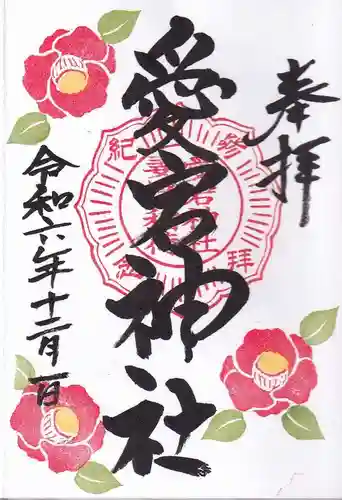 奉拝
愛宕神社
令和六年十二月一日
參拝
紀念